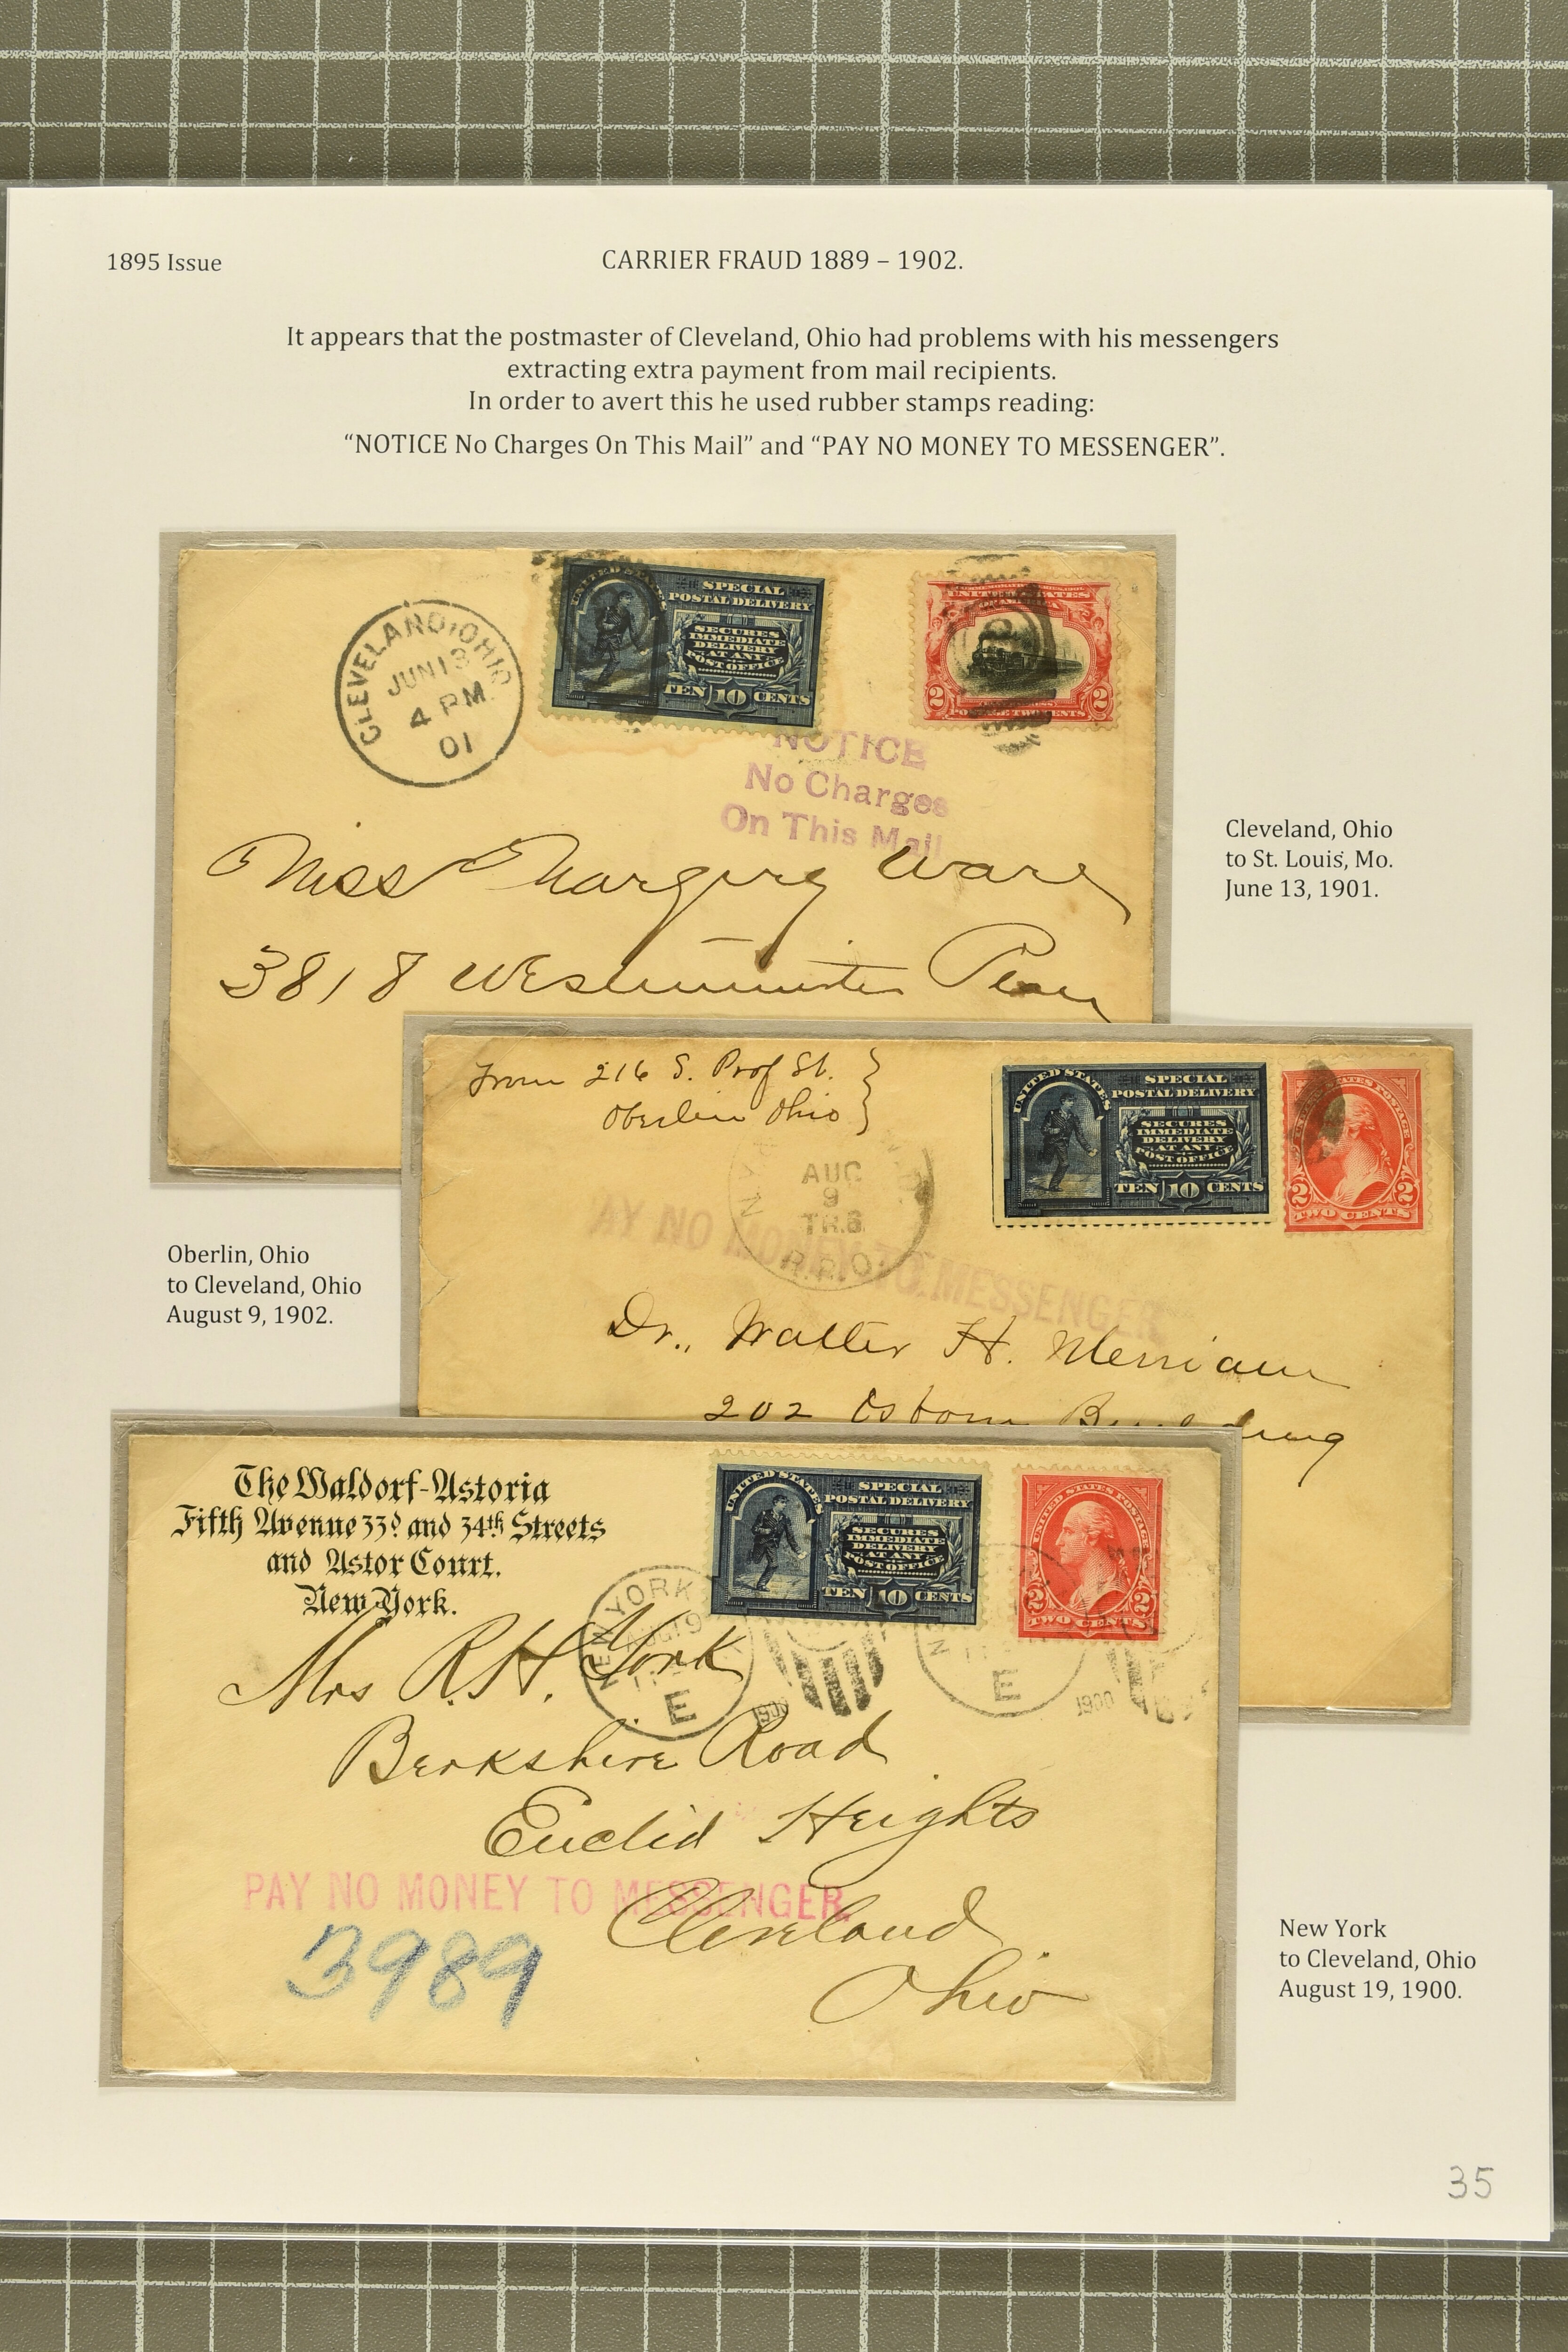 1895 Issue
CARRIER FRAUD 1889 – 1902.
It appears that the postmaster of Cleveland, Ohio had problems with his messengers
extracting extra payment from mail recipients.
In order to avert this he used rubber stamps reading:
“NOTICE No Charges On This Mail” and “PAY NO MONEY TO MESSENGER”.
CLEVELAND, OHIO
JUN 13
4 PM
01
UNITED STATES
SPECIAL
POSTAL DELIVERY
SECURES
IMMEDIATE
DELIVERY
AT ANY
POST OFFICE
TEN 10 CENTS
UNITED STATES
2 2
POSTAGE TWO CENTS
NOTICE
No Charges
On This Mail
Miss Ware
3818 Westminster
Cleveland, Ohio
to St. Louis, Mo.
June 13, 1901.
From 216 S. Prof St.
Oberlin Ohio
AUG
9
TR.6
R.P.O.
UNITED STATES
SPECIAL
POSTAL DELIVERY
SECURES
IMMEDIATE
DELIVERY
AT ANY
POST OFFICE
TEN 10 CENTS
STATES POSTAGE
2 2
TWO CENTS
AY NO MONEY TO MESSENGER
Dr., Walter H. Merriam
202 Osborn Building
Oberlin, Ohio
to Cleveland, Ohio
August 9, 1902.
The Waldorf-Astoria
Fifth Avenue 33d and 34th Streets
and Astor Court.
New York.
NEW YORK
AUG 19
E
1900
UNITED STATES
SPECIAL
POSTAL DELIVERY
SECURES
IMMEDIATE
DELIVERY
AT ANY
POST OFFICE
TEN 10 CENTS
UNITED STATES POSTAGE
2 2
TWO CENTS
E
1900
Mrs R.H. York
Berkshire Road
Euclid Heights
PAY NO MONEY TO MESSENGER.
Cleveland
Ohio
3989
New York
to Cleveland, Ohio
August 19, 1900.
35